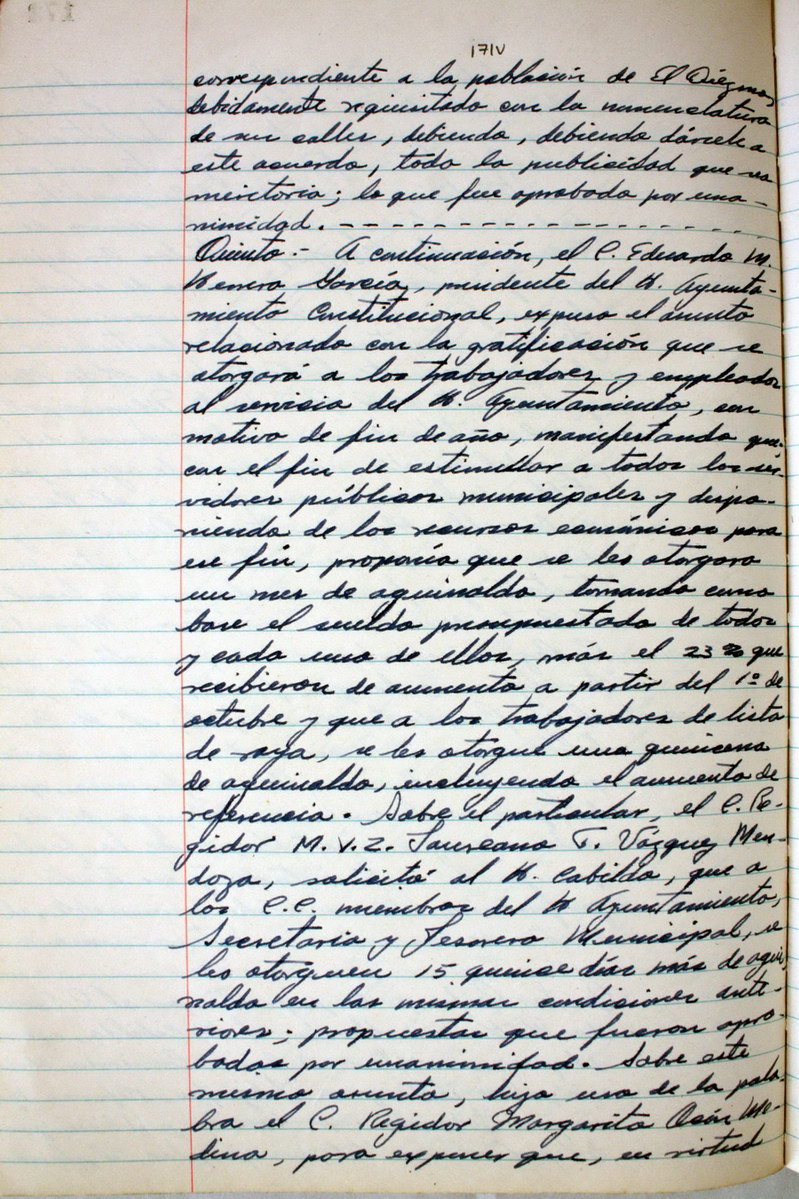 171V
correspondiente a la población de El Diezmo,
debidamente requisitado con la nomenclatura
de sus calles, debiendo, debiendo dársele a
este acuerdo, toda la publicidad que sea
meritoria; lo que fue aprobado por una-
nimidad. - - - - - - - - - - - - - - - - -
Quinto:- A continuación, el C. Eduardo M.
Herrera García, presidente del H. Ayunta-
miento Constitucional, expuso el asunto
relacionado con la gratificación que se
otorgará a los trabajadores y empleados
al servicio del H. Ayuntamiento, con
motivo de fin de año, manifestando que-
con el fin de estimular a todos los ser-
vidores públicos municipales y dispo-
niendo de los recursos económicos para
ese fin, proponía que se les otorgara
un mes de aguinaldo, tomando como
base el sueldo presupuestado de todos
y cada uno de ellos, más el 23% que
recibieron de aumento a partir del 1º de
octubre y que a los trabajadores de lista
de raya, se les otorgue una quincena
de aguinaldo, incluyendo el aumento de
referencia. Sobre el particular, el C. Re-
gidor M.V.Z. Laureano T. Vázquez Men-
doza, solicitó al H. Cabildo, que a
los C.C. miembros del H Ayuntamiento,
Secretario y Tesorero Municipal, se
les otorguen 15 quince días más de agui-
naldo en las mismas condiciones ante-
riores; propuestas que fueron apro-
badas por unanimidad. Sobre este
mismo asunto, hizo uso de la pala-
bra el C. Regidor Margarito Me-
dina, para exponer que, en virtud